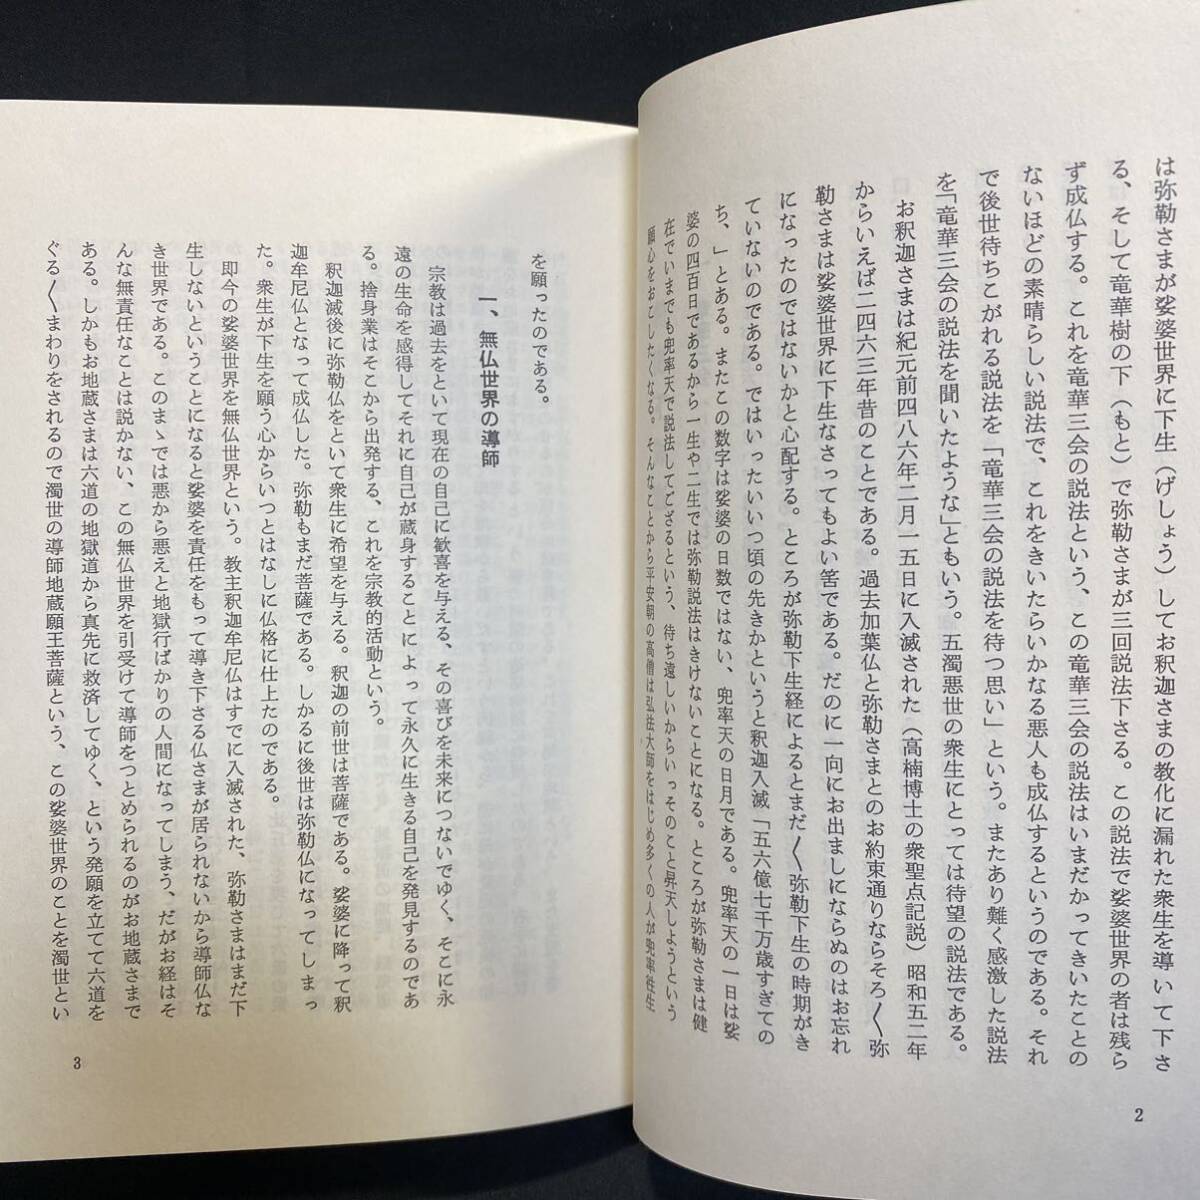 は弥勒さまが娑婆世界に下生（げしょう）してお釈迦さまの教化に漏れた衆生を導いて下さ
る、そして竜華樹の下（もと）で弥勒さまが三回説法下さる。この説法で娑婆世界の者は残ら
ず成仏する。これを竜華三会の説法という、この竜華三会の説法はいまだかってきいたことの
ないほどの素晴らしい説法で、これをきいたらいかなる悪人も成仏するというのである。それ
で後世待ちこがれる説法を「竜華三会の説法を待つ思い」という。またあり難く感激した説法
を「竜華三会の説法を聞いたような」ともいう。五濁悪世の衆生にとっては待望の説法である。
お釈迦さまは紀元前四八六年二月一五日に入滅された（高楠博士の衆聖点記説）昭和五二年
からいえば二四六三年昔のことである。過去加葉仏と弥勒さまとのお約束通りならそろ〳〵弥
勒さまは娑婆世界に下生なさってもよい筈である。だのに一向にお出ましにならぬのはお忘れ
になったのではないかと心配する。ところが弥勒下生経によるとまだ〳〵弥勒下生の時期がき
ていないのである。ではいったいいつ頃の先きかというと釈迦入滅「五六億七千万歳すぎての
ち、」とある。またこの数字は娑婆の日数ではない、兜率天の日月である。兜率天の一日は娑
婆の四百日であるから一生や二生では弥勒説法はきけないことになる。ところが弥勒さまは健
在でいまでも兜率天で説法してござるという、待ち遠しいからいっそのこと昇天しようという
願心をおこしたくなる。そんなことから平安朝の高僧は弘法大師をはじめ多くの人が兜率往生
2
を願ったのである。
一、無仏世界の導師
宗教は過去をといて現在の自己に歓喜を与える、その喜びを未来につないでゆく、そこに永
遠の生命を感得してそれに自己が蔵身することによって永久に生きる自己を発見するのであ
る。捨身業はそこから出発する、これを宗教的活動という。
釈迦滅後に弥勒仏をといて衆生に希望を与える。釈迦の前世は菩薩である。娑婆に降って釈
迦牟尼仏となって成仏した。弥勒もまだ菩薩である。しかるに後世は弥勒仏になってしまっ
た。衆生が下生を願う心からいつとはなしに仏格に仕上たのである。
即今の娑婆世界を無仏世界という。教主釈迦牟尼仏はすでに入滅された、弥勒さまはまだ下
生しないということになると娑婆を責任をもって導き下さる仏さまが居られないから導師仏な
き世界である。このまゝでは悪から悪えと地獄行ばかりの人間になってしまう、だがお経はそ
んな無責任なことは説かない、この無仏世界を引受けて導師をつとめられるのがお地蔵さまで
ある。しかもお地蔵さまは六道の地獄道から真先に救済してゆく、という発願を立てて六道を
ぐる〳〵まわりをされるので濁世の導師地蔵願王菩薩という、この娑婆世界のことを濁世とい
3